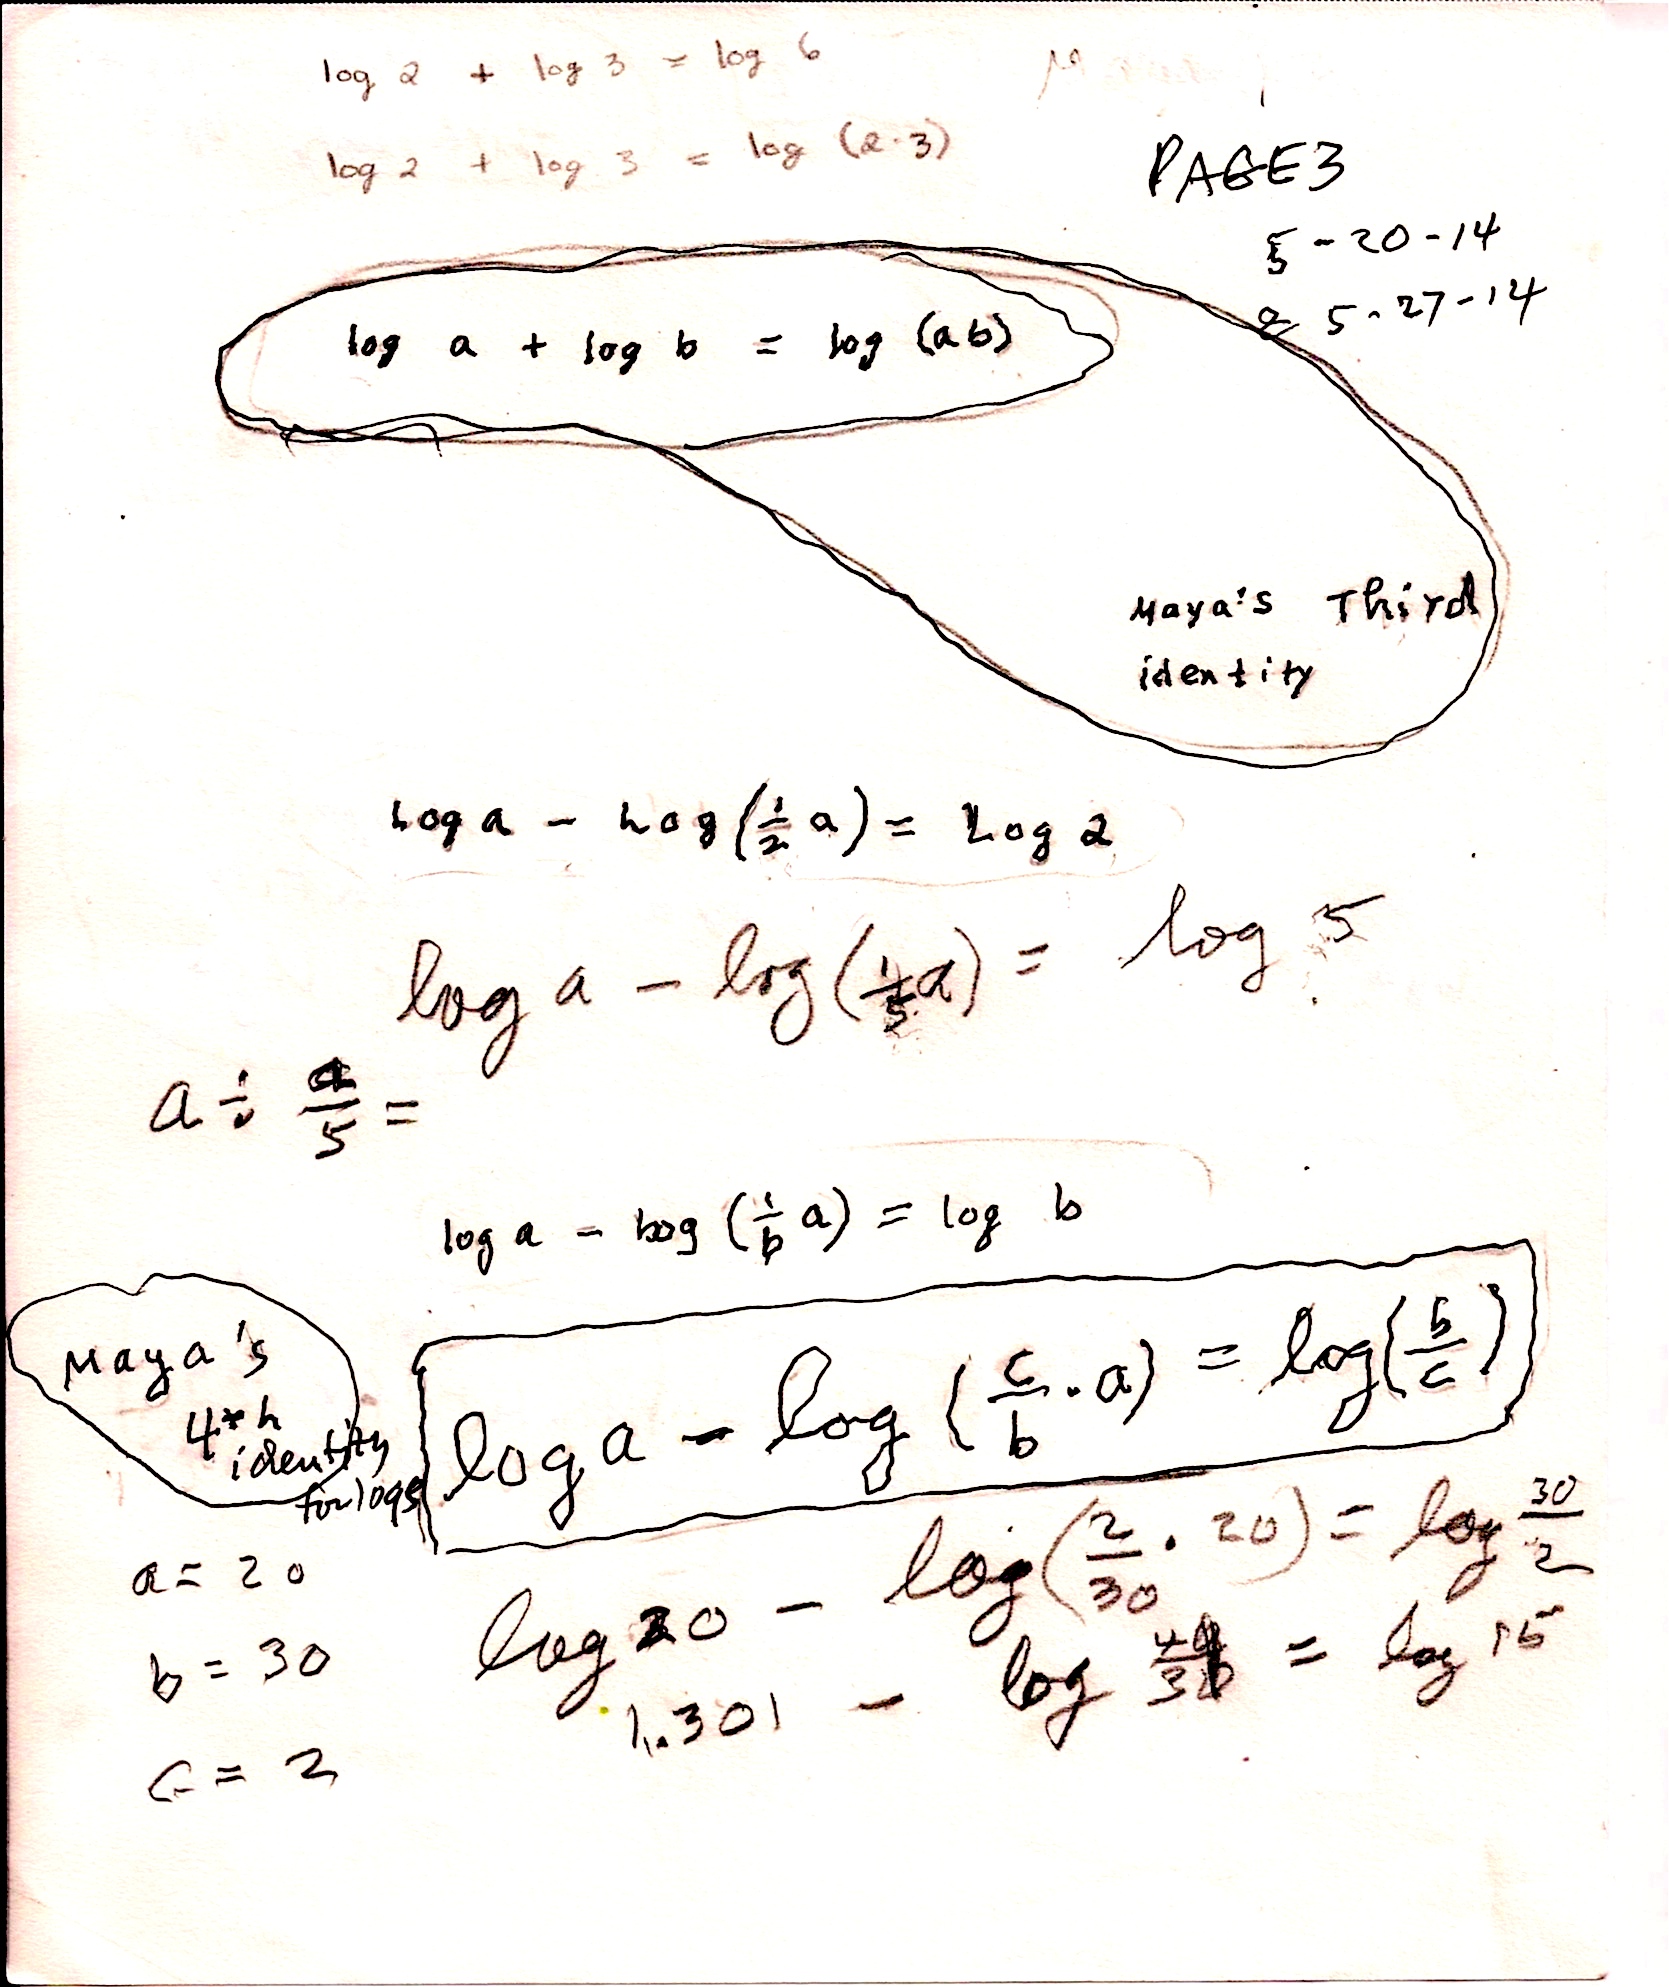 log 2 + log 3 = log 6
log 2 + log 3 = log (2·3)
PAGE3
5-20-14
& 5-27-14
log a + log b = log (ab)
Maya's Third
identity
Log a - Log (1/2 a) = Log 2
log a - log (1/5 a) = log 5
a ÷ a/5 =
log a - log (1/b a) = log b
Maya's
4th
identity
for logs
log a - log (c/b · a) = log (b/c)
a = 20
log 20 - log (2/30 · 20) = log 30/2
b = 30
1.301 - log = log 15
c = 2